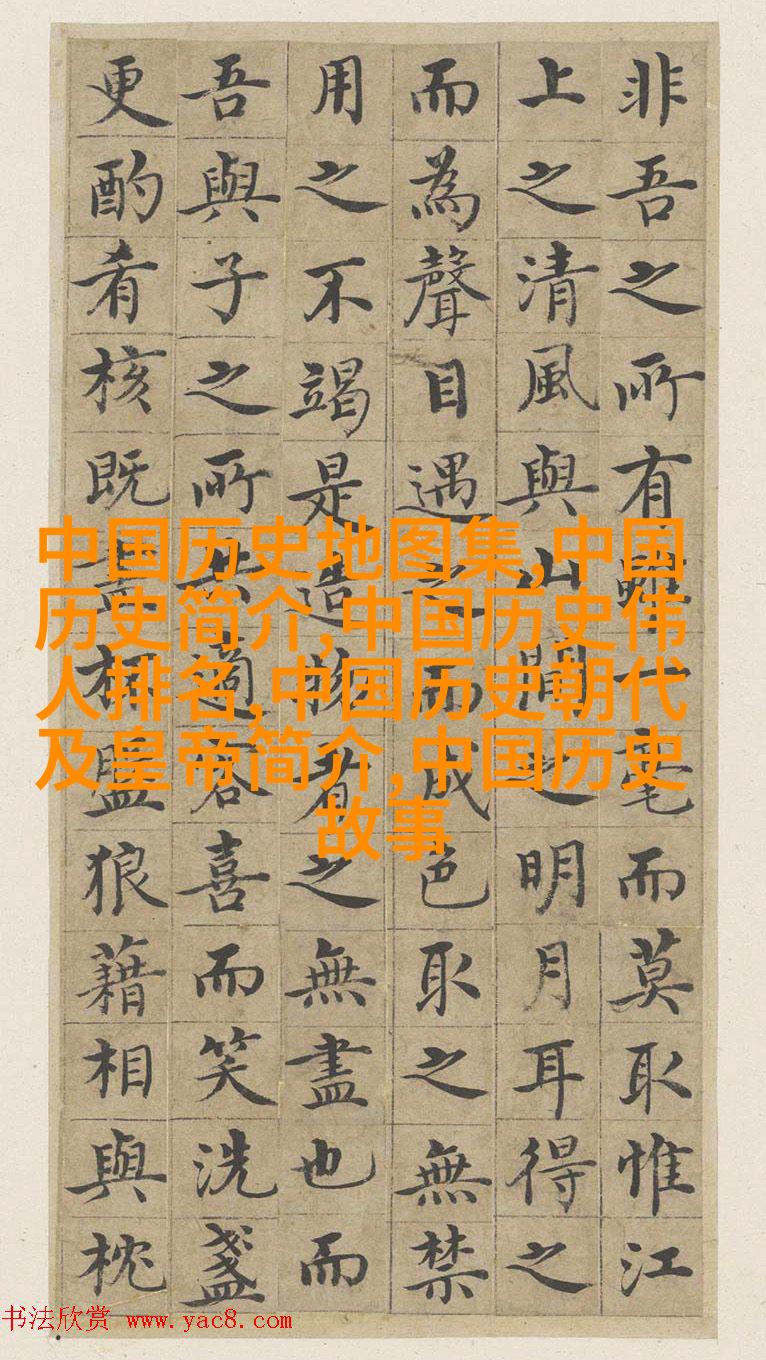 非吾之所有雖一毫而莫取惟江
上之清風與山間之明月耳得之
而為聲目遇之而成色取之無禁
用之不竭是造物者之無盡也而
吾與子之所共適客喜而笑洗盞
更酌肴核既盡杯盤狼藉相與枕
中国历史地图集,中国
历史简介,中国历史伟
人排名,中国历史朝代
及皇帝简介,中国历史
故事
书法欣赏 www.yac8.com